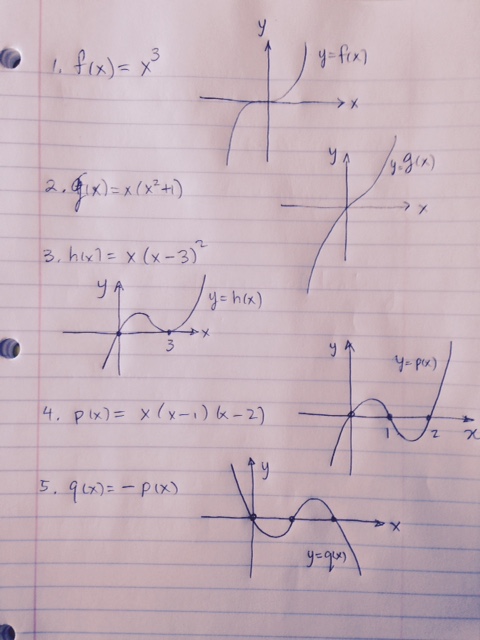 1. f(x) = x³
y
y = f(x)
x
2. g(x) = x(x²+1)
y
y = g(x)
x
3. h(x) = x(x-3)²
y
y = h(x)
3
x
4. p(x) = x(x-1)(x-2)
y
y = p(x)
1
2
x
5. q(x) = -p(x)
y
x
y = q(x)